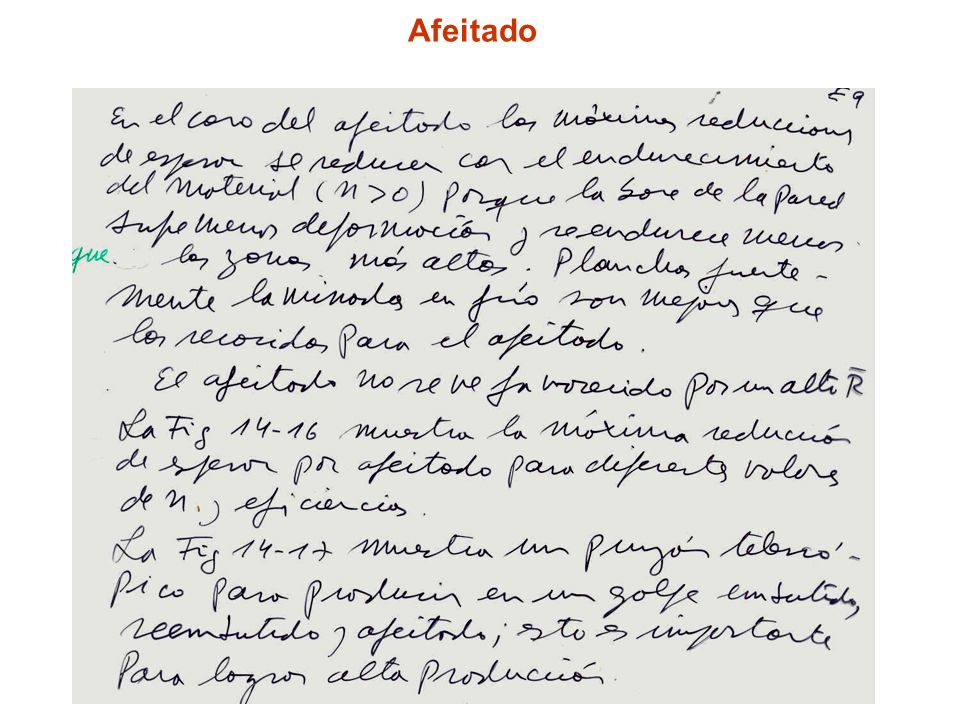 Afeitado
E9
En el caso del afeitado las máximas reducciones
de espesor se reducen con el endurecimiento
del material (n>0) porque la base de la pared
sufre menos deformación y se endurece menos
que las zonas más altas. Planchas fuerte-
mente laminadas en frío son mejores que
las recocidas para el afeitado.
El afeitado no se ve favorecido por un alto R̅
La Fig 14-16 muestra la máxima reducción
de espesor por afeitado para diferentes valores
de n y eficiencias.
La Fig 14-17 muestra un punzón telescó-
pico para producir en un golpe embutido,
reembutido y afeitado; esto es importante
Para lograr alta producción.